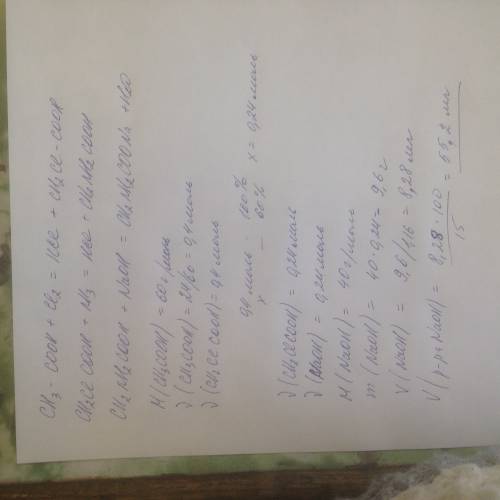 CH3 - COOH + Cl2 = HCl + CH2Cl - COOH
CH2Cl COOH + NH3 = HCl + CH2NH2 COOH
CH2NH2COOH + NaOH = CH2NH2COONa + H2O
M(CH3COOH) = 60 г/моль
ϑ(CH3COOH) = 24/60 = 0,4 моль
ϑ(CH2ClCOOH) = 0,4 моль
0,4 моль - 100%
x - 60% x = 0,24 моль
ϑ(CH2ClCOOH) = 0,24 моль
ϑ(NaOH) = 0,24 моль
M(NaOH) = 40 г/моль
m(NaOH) = 40 · 0,24 = 9,6 г
V(NaOH) = 9,6/1,16 = 8,28 мл
V(р-ра NaOH) = 8,28 · 100 / 15 = 55,2 мл